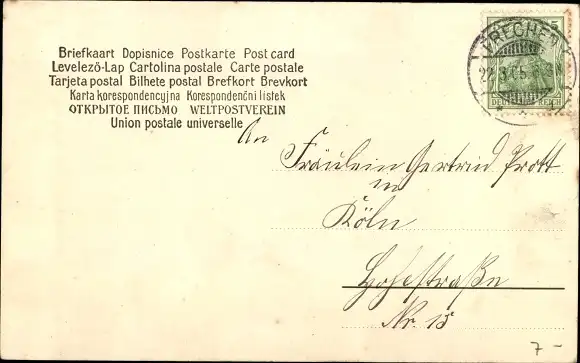 Briefkaart Dopisnice Postkarte Post card
Levelező-Lap Cartolina postale Carte postale
Tarjeta postal Bilhete postal Brefkort Brevkort
Karta korespondencyjna Korespondenční lístek
ОТКРЫТОЕ ПИСЬМО WELTPOSTVEREIN
Union postale universelle
FRECHEN
5
DEUTSCHES REICH
An
Fräulein Gertrud Prott
in
Köln
Hohestraße
Nr. 15
7 -